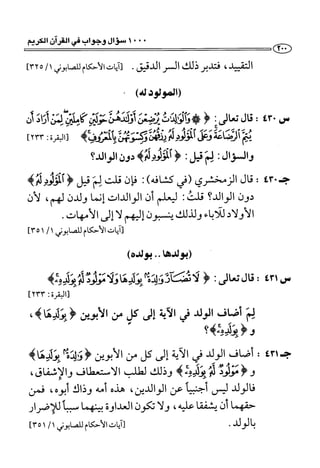 ١٠٠٠ سؤال وجواب في القرآن الكريم
٢٠٠
التقييد، فتدبر ذلك السر الدقيق. [آيات الأحكام للصابوني ١/ ٣٢٥]
(المولود له)
س ٤٣٠ : قال تعالى: ﴿ ۞ وَٱلْوَٰلِدَٰتُ يُرْضِعْنَ أَوْلَٰدَهُنَّ حَوْلَيْنِ كَامِلَيْنِ ۖ لِمَنْ أَرَادَ أَن
يُتِمَّ ٱلرَّضَاعَةَ ۚ وَعَلَى ٱلْمَوْلُودِ لَهُۥ رِزْقُهُنَّ وَكِسْوَتُهُنَّ بِٱلْمَعْرُوفِ ۚ ﴾ [البقرة: ٢٣٣]
والسؤال: لِمَ قيل: ﴿ ٱلْمَوْلُودِ لَهُۥ ﴾ دون الوالد؟
جـ ٤٣٠ : قال الزمخشري (في كشافه): فإن قلت لِمَ قيل ﴿ ٱلْمَوْلُودِ لَهُۥ ﴾
دون الوالد؟ قلتُ: ليعلم أن الوالدات إنما ولدن لهم، لأن
الأولاد للآباء ولذلك ينسبون إليهم لا إلى الأمهات.
[آيات الأحكام للصابوني ١/ ٣٥١]
(بولدها .. بولده)
س ٤٣١ : قال تعالى: ﴿ لَا تُضَآرَّ وَٰلِدَةٌۢ بِوَلَدِهَا وَلَا مَوْلُودٌ لَّهُۥ بِوَلَدِهِۦ ۚ ﴾
[البقرة: ٢٣٣]
لِمَ أضاف الولد في الآية إلى كل من الأبوين ﴿ بِوَلَدِهَا ﴾،
و ﴿ بِوَلَدِهِۦ ۚ ﴾؟
جـ ٤٣١ : أضاف الولد في الآية إلى كل من الأبوين ﴿ وَٰلِدَةٌۢ بِوَلَدِهَا ﴾
و ﴿ مَوْلُودٌ لَّهُۥ بِوَلَدِهِۦ ۚ ﴾ وذلك لطلب الاستعطاف والإشفاق،
فالولد ليس أجنبياً عن الوالدين، هذه أمه وذاك أبوه، فمن
حقهما أن يشفقا عليه، ولا تكون العداوة بينهما سبباً للإضرار
بالولد. [آيات الأحكام للصابوني ١/ ٣٥١]